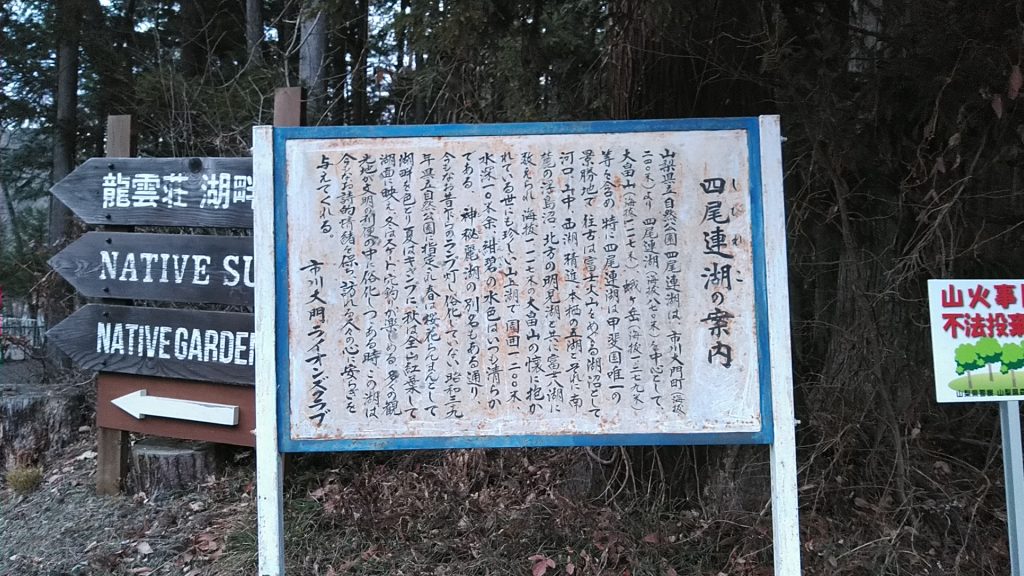 四尾連湖の案内
しびれこ
山梨県立自然公園 四尾連湖は、市川大門町(海抜
二〇〇米)より 四尾連湖(海抜八八〇米)を中心として、
大畠山(海抜一一一七米) 蛾ケ岳(海抜一二七九米)
等を含め 特に四尾連湖は甲斐国唯一の
景勝地で 往古は富士山をめぐる湖沼として
河口 山中 西湖 精進 本栖の五湖とそれに南
麓の浮島沼、北方の明見湖と共に富士八湖に
数えられ 海抜一一一七米の大畠山の懐に抱か
れている世にも珍しい山上湖で 周囲一二〇〇米
水深一〇米余 紺碧の水色はいつも清らか
である 神秘麗湖の別名もある通り、
今もなお昔ながらのランプが灯り俗化していない 昭和三九
年県立自然公園に指定され 春は桜花らんまんとして
湖畔を色どり 夏はキャンプに 秋は全山紅葉して
湖面に映え、冬はスケートに穴釣が楽しめる 多くの観
光地が文明の利便の中に俗化しつつある時、この湖は
今もなお詩的情緒を保ち 訪れる人々の心に安らぎを
与えてくれる。
市川大門ライオンズクラブ
龍雲荘 湖畔
NATIVE SU
NATIVE GARDEN
山火事
不法投棄